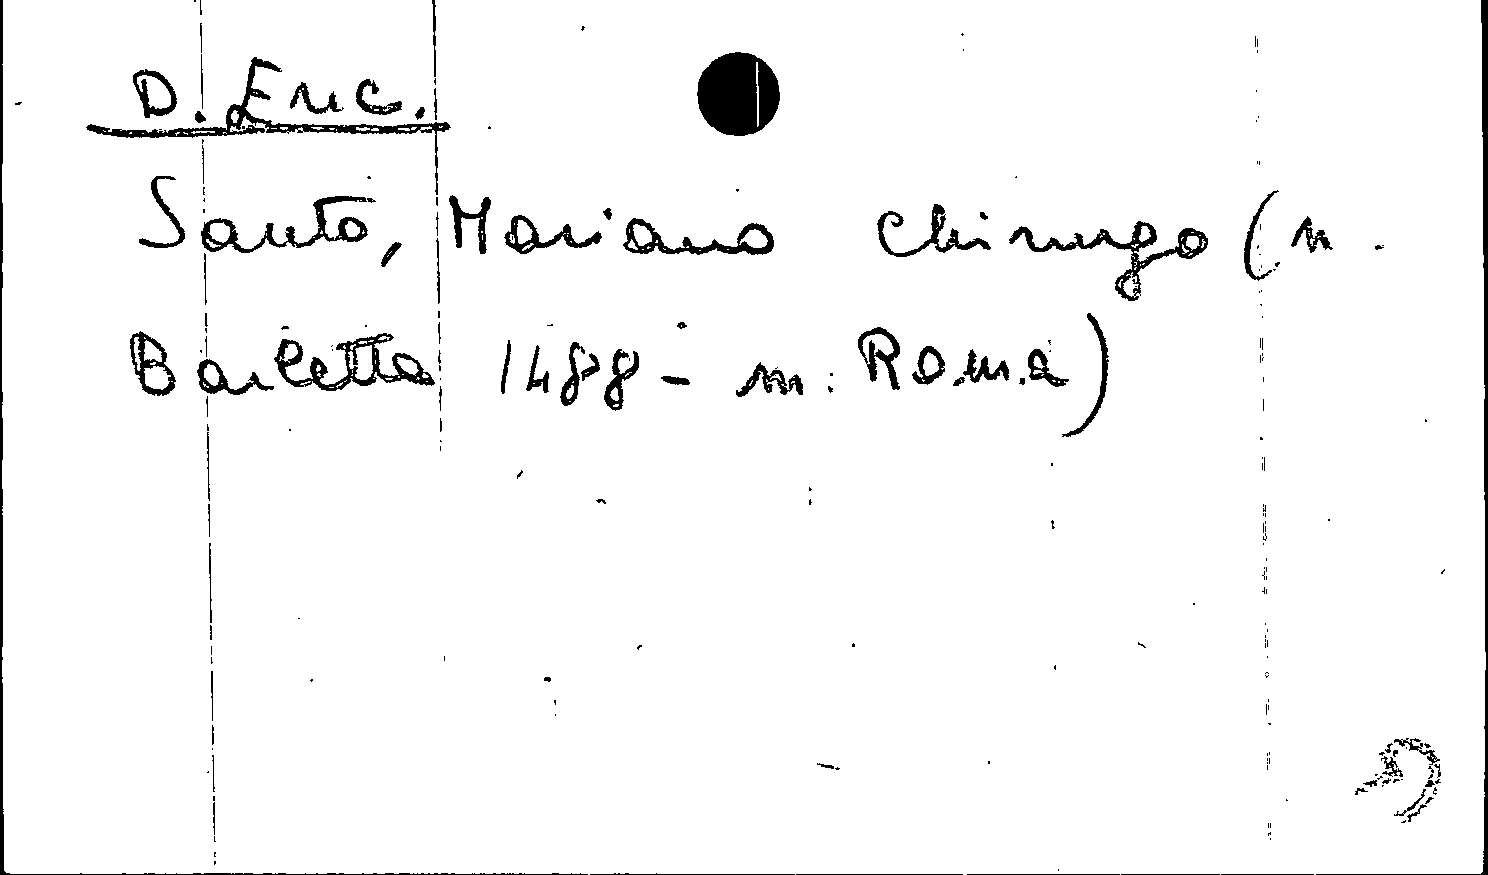 D. Enc.
Santo, Mariano chirurgo (n.
Barletta 1488 - m. Roma)